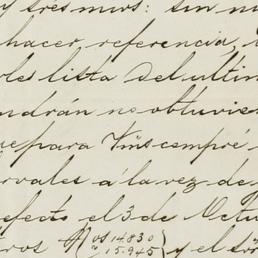 y tres mios: sin
hacer referencia,
lista del ultim
ndrán no obtuvie
para Vins cempré
rvales á la vez de
efecto el 3 de Octu
ros (os 14.830
y 15.945) y el